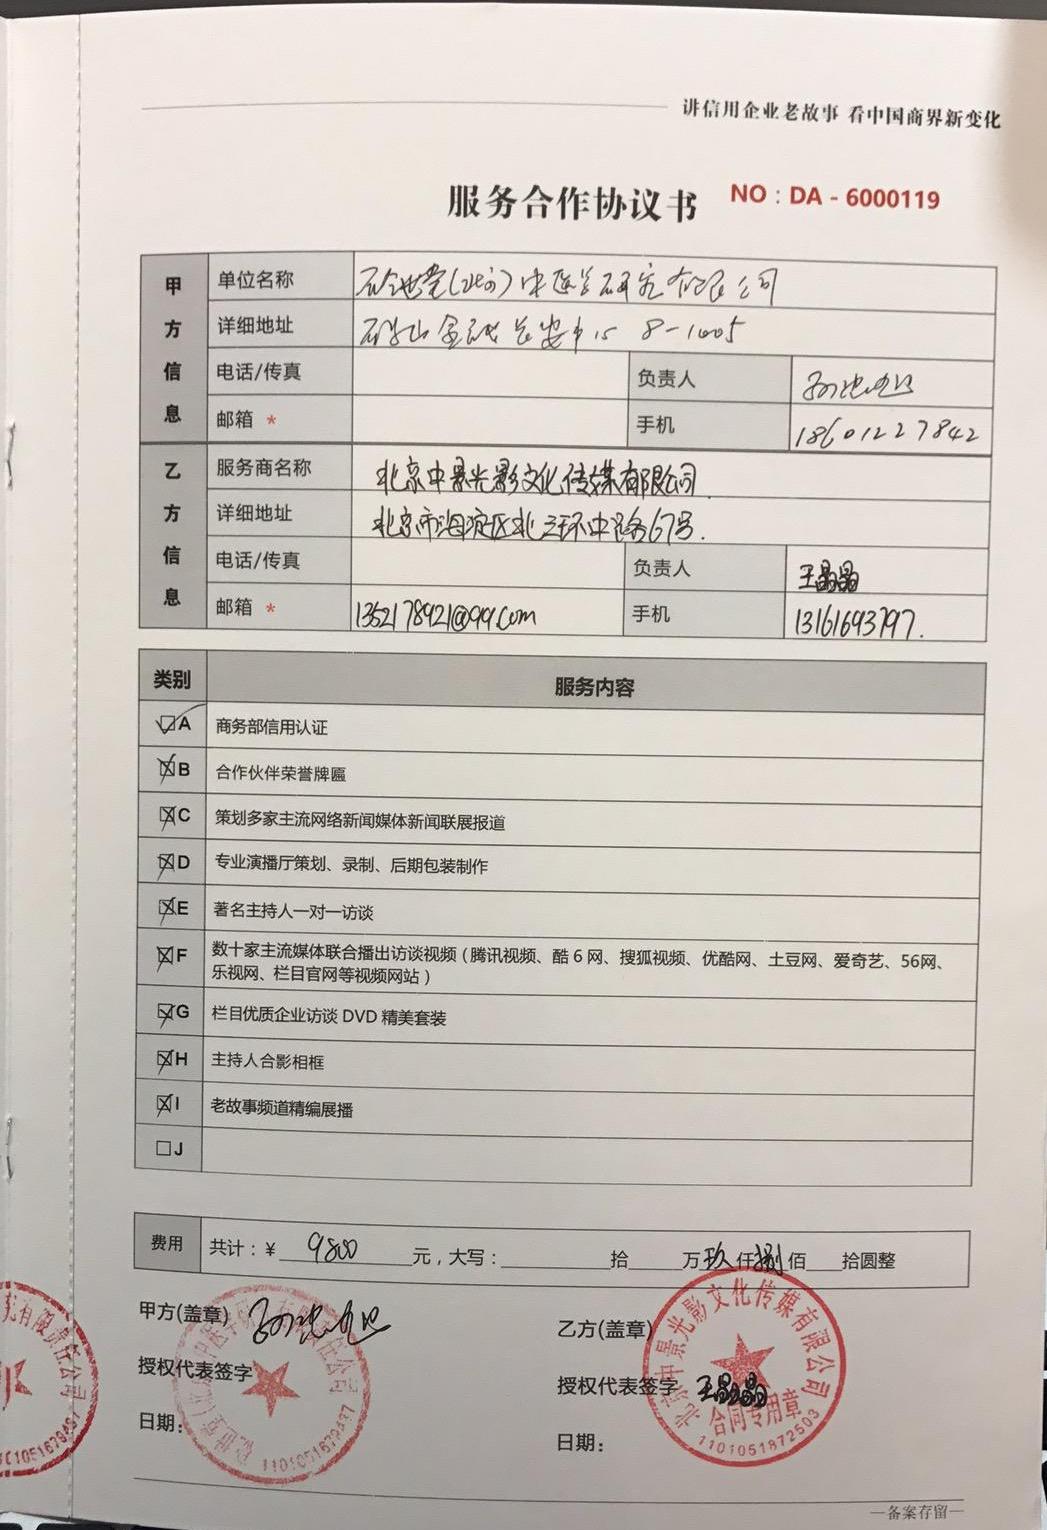 讲信用企业老故事 看中国商界新变化
服务合作协议书 NO：DA - 6000119
甲方信息
单位名称 (北京)中医学研究有限公司
详细地址 石景山金融长安中心 8-1005
电话/传真 负责人
邮箱 * 手机 18601227842
乙方信息
服务商名称 北京中景光影文化传媒有限公司
详细地址 北京市海淀区北三环中路67号.
电话/传真 负责人 王晶晶
邮箱 * 1352178921@qq.com 手机 13161693797.
类别 服务内容
A 商务部信用认证
B 合作伙伴荣誉牌匾
C 策划多家主流网络新闻媒体新闻联展报道
D 专业演播厅策划、录制、后期包装制作
E 著名主持人一对一访谈
F 数十家主流媒体联合播出访谈视频（腾讯视频、酷6网、搜狐视频、优酷网、土豆网、爱奇艺、56网、
乐视网、栏目官网等视频网站）
G 栏目优质企业访谈 DVD 精美套装
H 主持人合影相框
I 老故事频道精编展播
J
费用 共计：¥ 9800 元，大写： 拾 万 玖 仟 捌 佰 拾圆整
甲方(盖章)
乙方(盖章)
授权代表签字
授权代表签字 王晶晶
日期：
日期：
北京中景光影文化传媒有限公司
合同专用章
1101051872503
—备案存留—